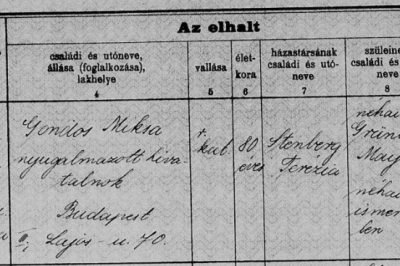 Az elhalt
családi és utóneve, állása (foglalkozása), lakhelye
4
vallása
5
élet-kora
6
házastársának családi és utó-neve
7
szüleine
családi és
neve
8
Gondos Miksa
nyugalmazott hiva-
talnok
Budapest
II, Lajos-u. 70.
r. kath.
80
éves
Stenberg
Terézia
néhai
Grün
néhai
isme
ben